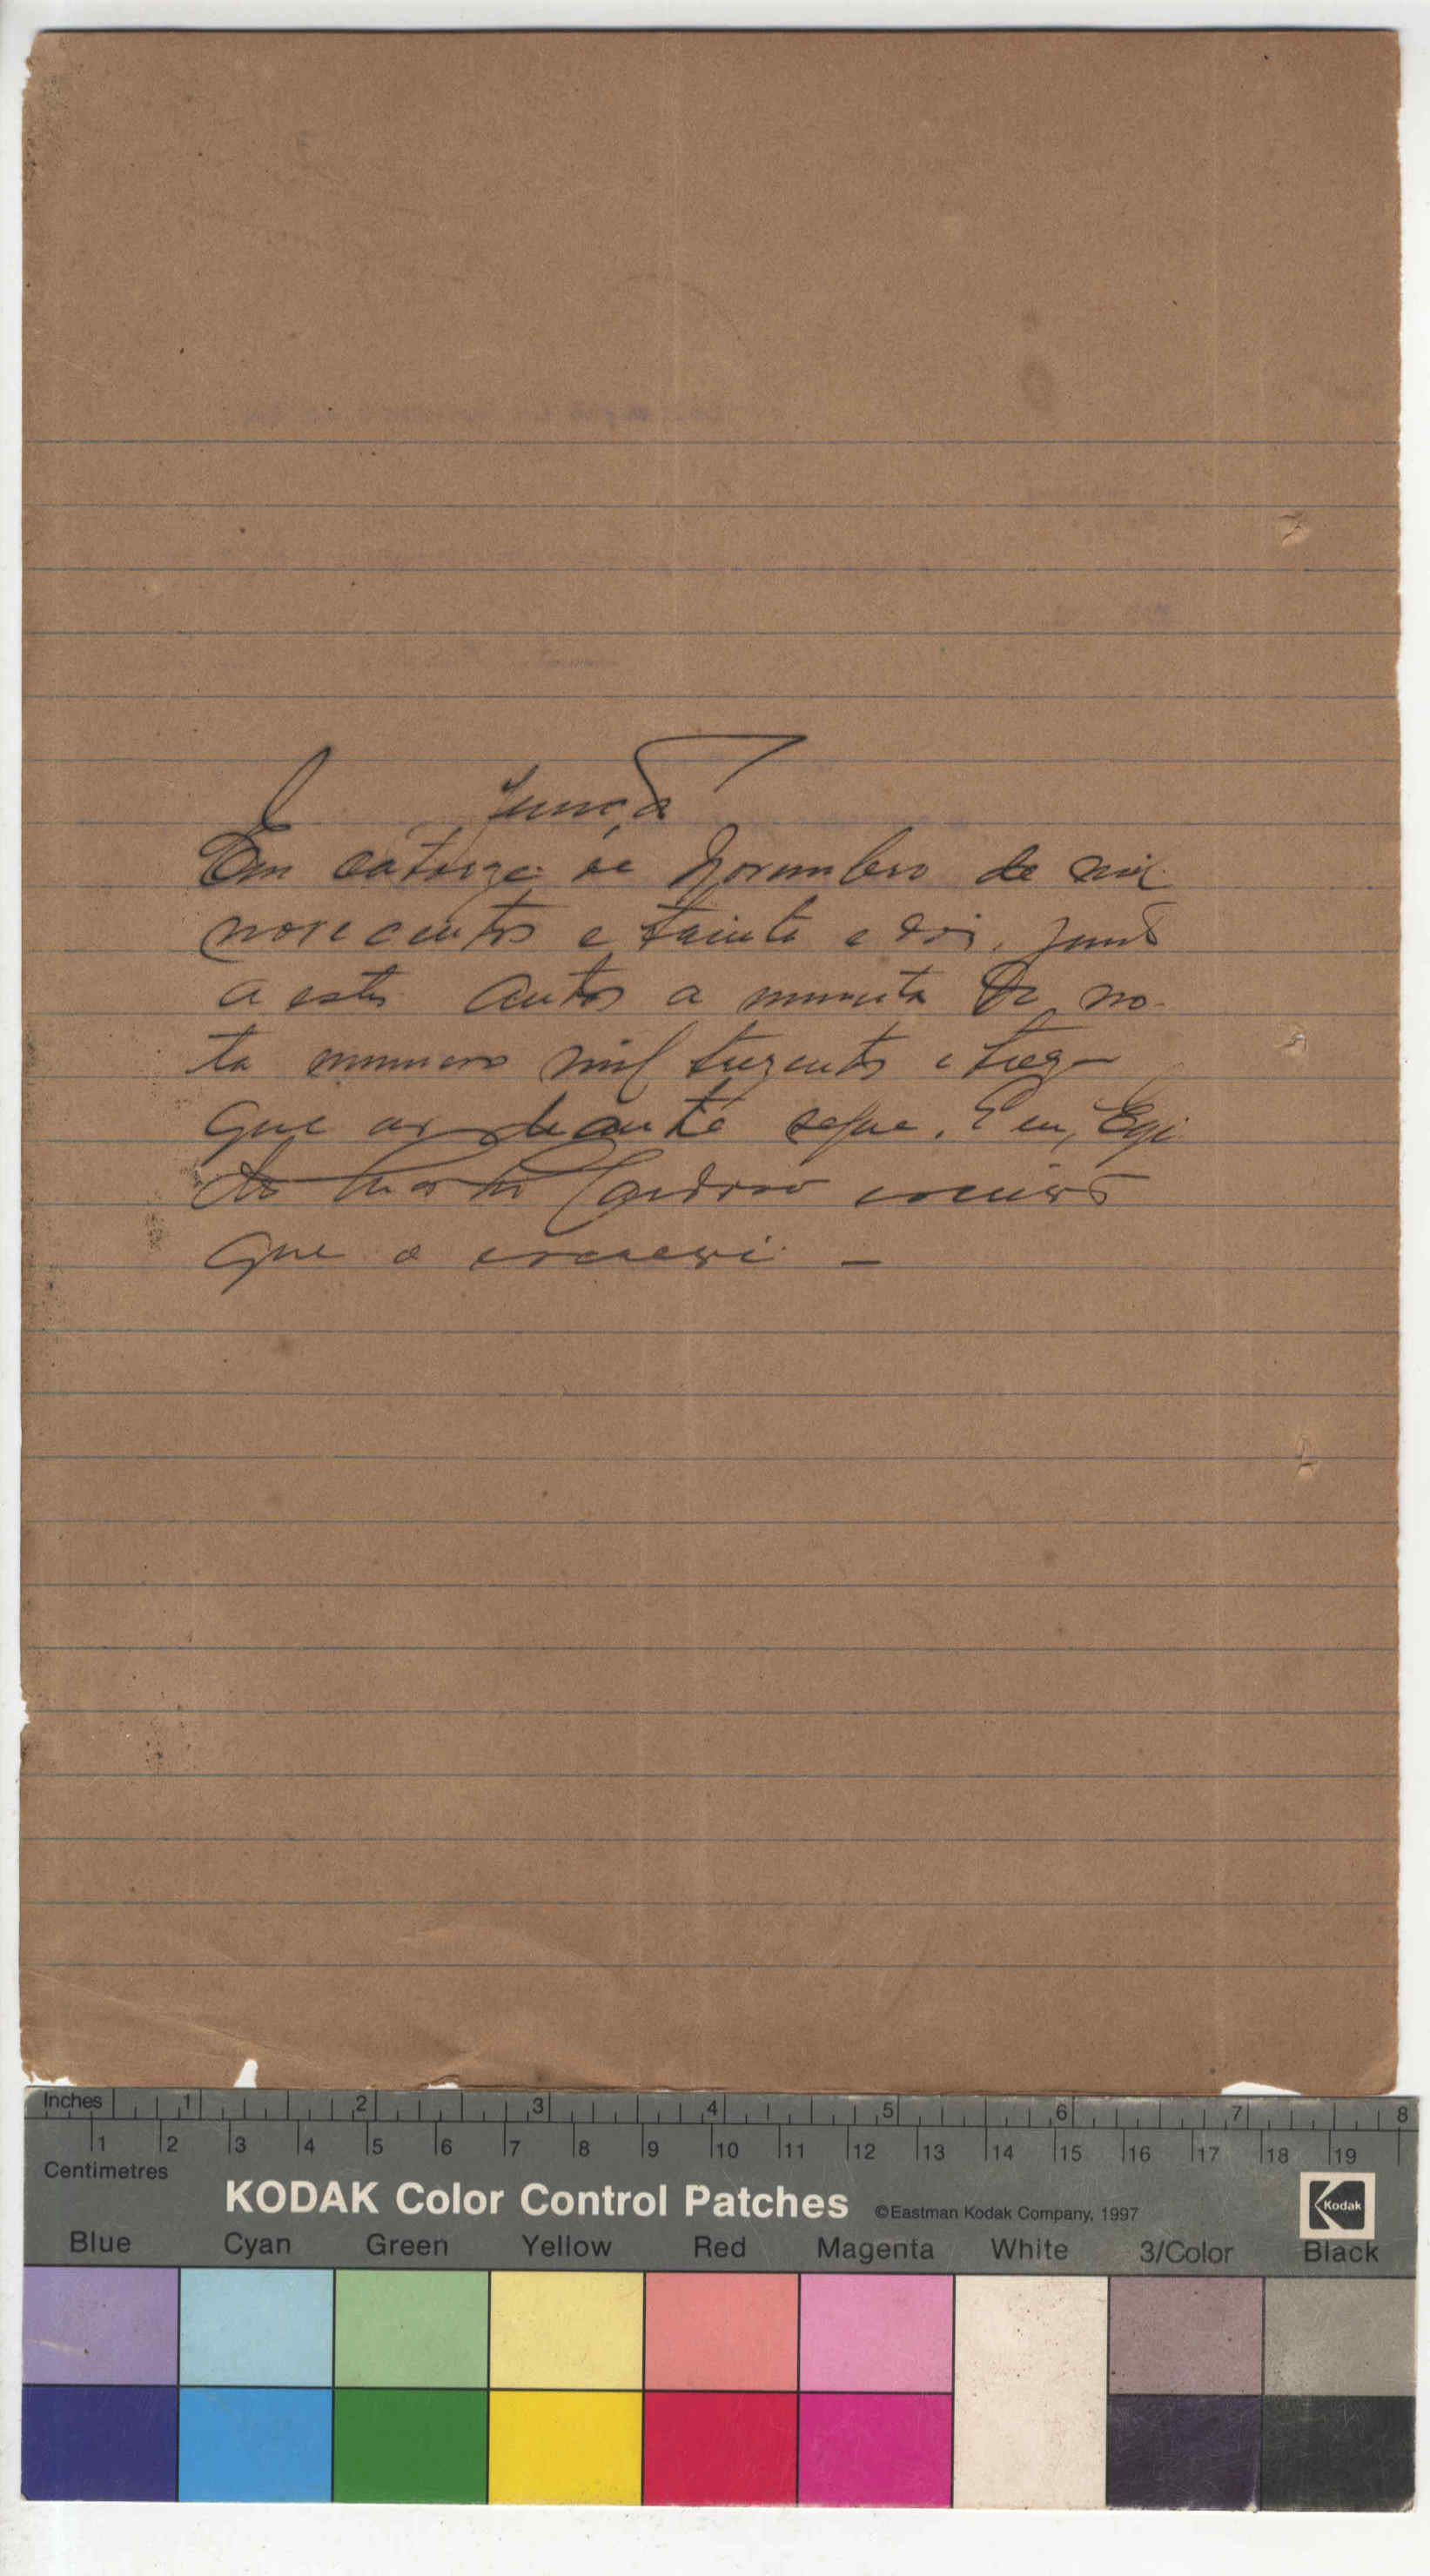 Junta
Em catorze de Novembro de mil
novecentos e trinta e dois, junto
a estes autos a minuta de no-
ta numero mil trezentos e treze
que ao deante segue. E eu, Egi
do Cardoso escrivão
que o escrevi –
Inches 1 2 3 4 5 6 7 8
1 2 3 4 5 6 7 8 9 10 11 12 13 14 15 16 17 18 19
Centimetres
KODAK Color Control Patches ©Eastman Kodak Company, 1997 Kodak
Blue Cyan Green Yellow Red Magenta White 3/Color Black